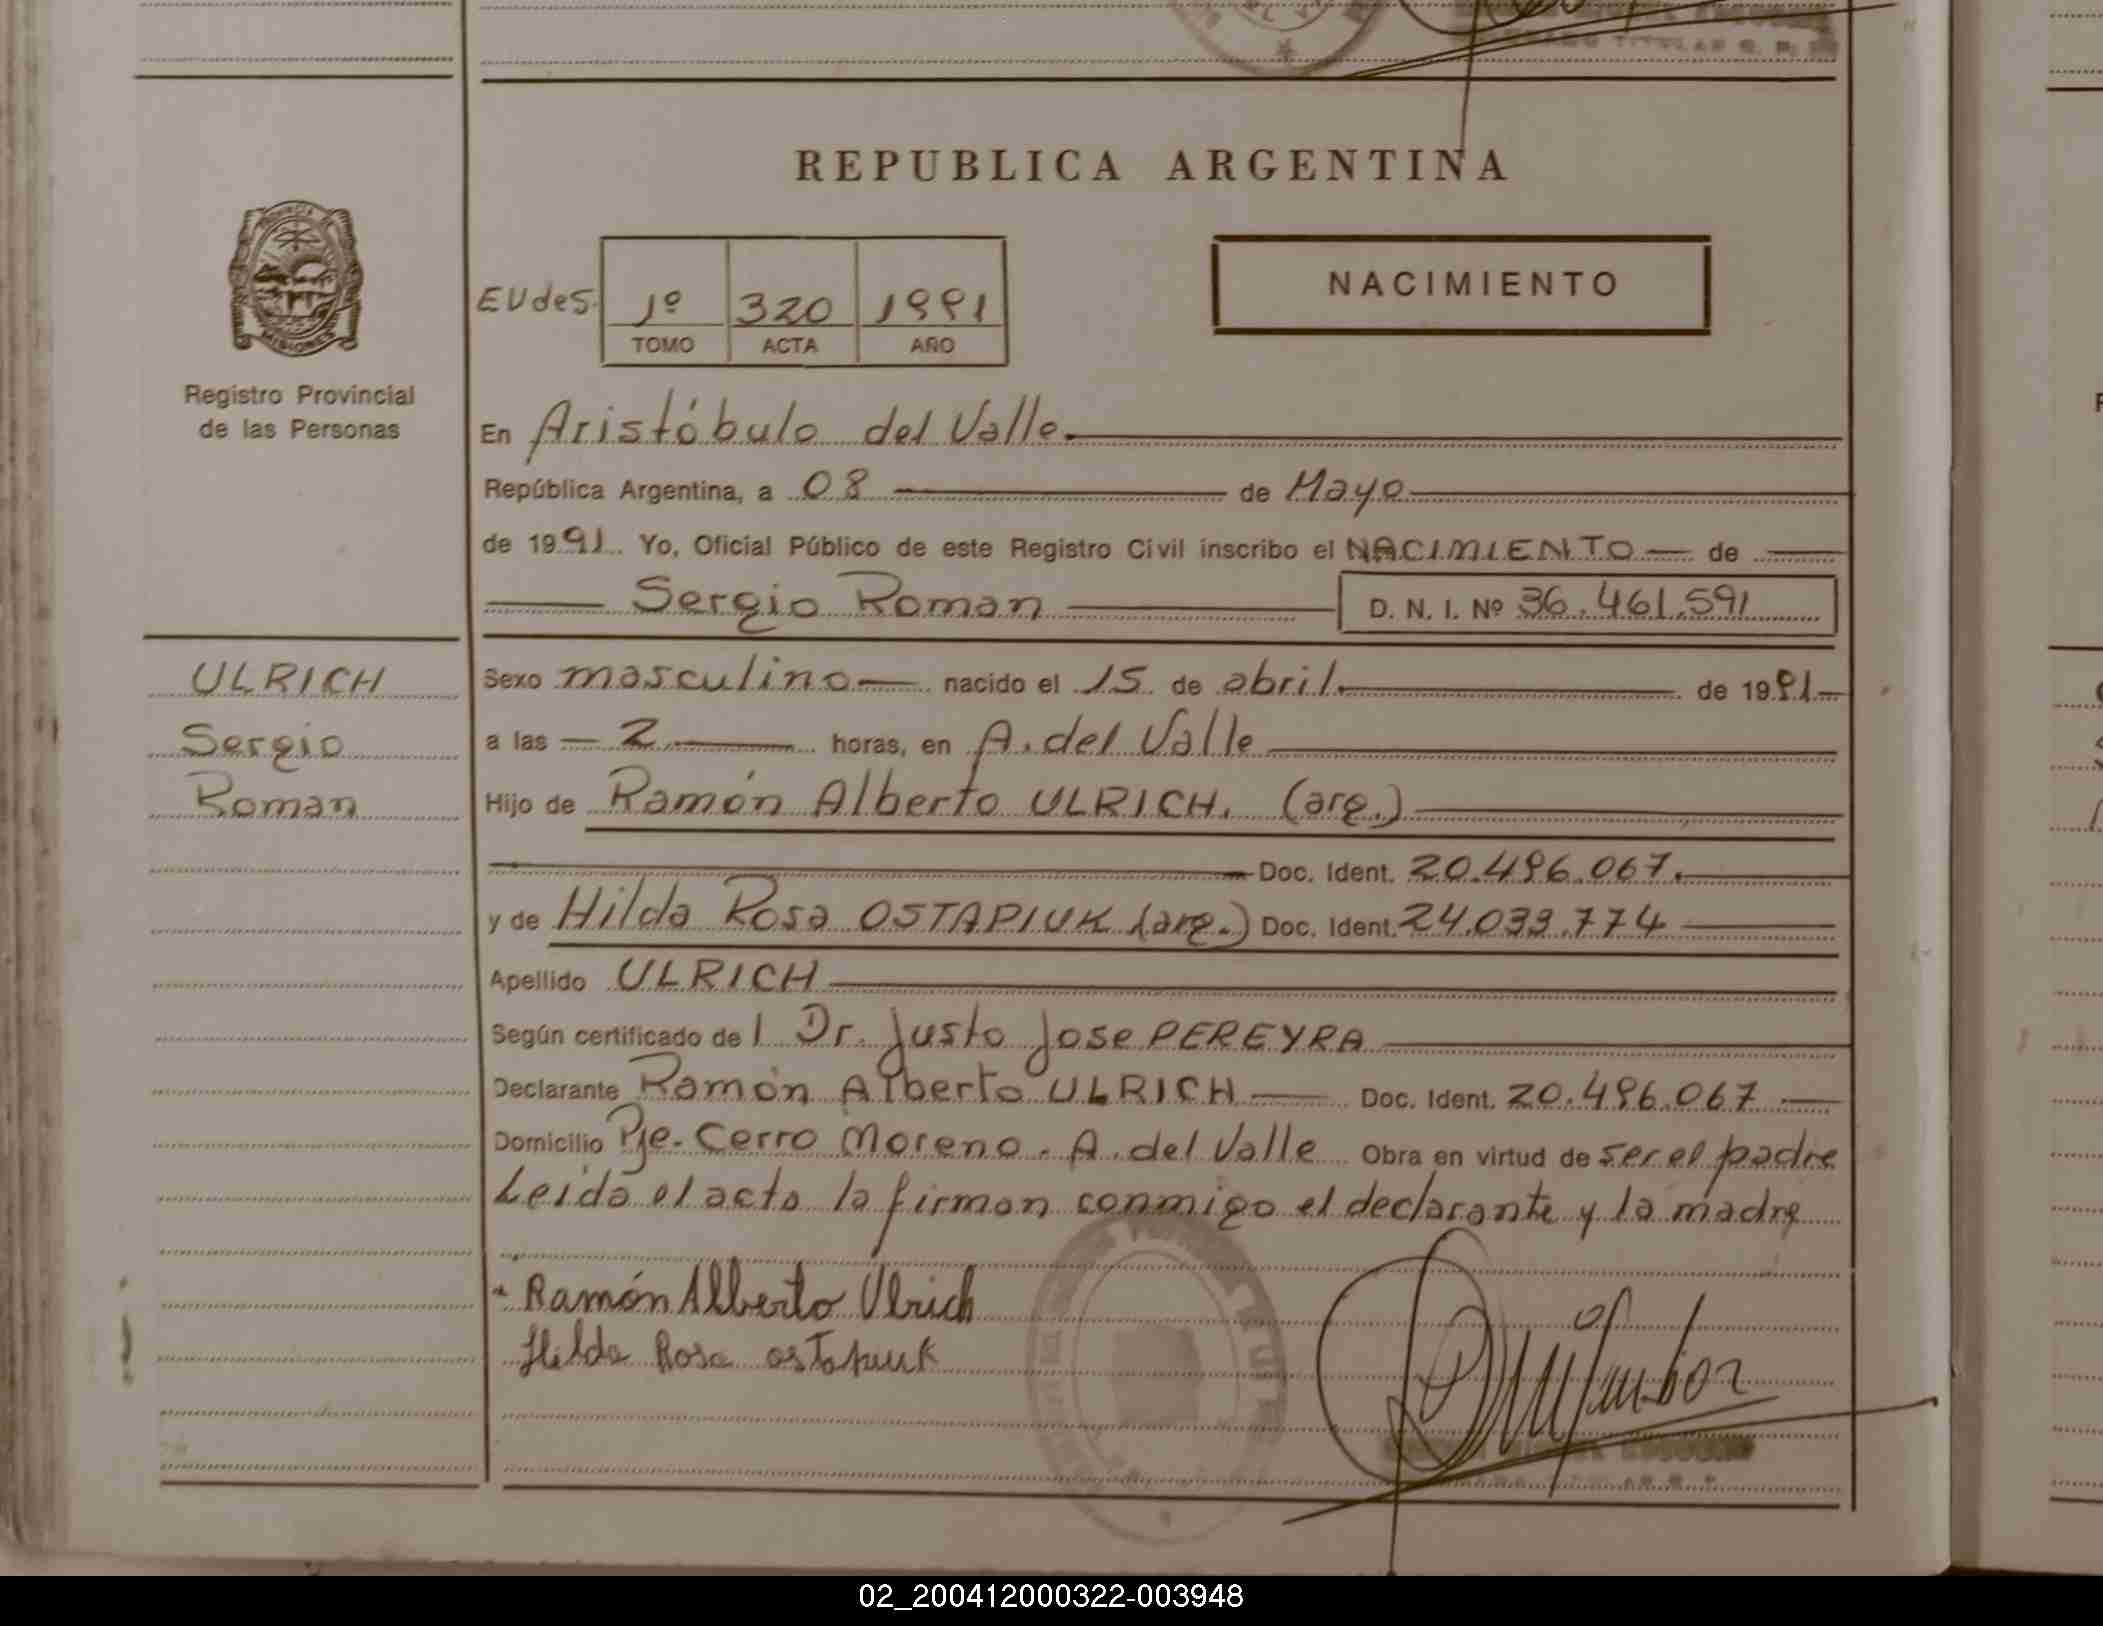 REPUBLICA ARGENTINA
EVdes. 1º 320 1991
TOMO ACTA AÑO
NACIMIENTO
Registro Provincial
de las Personas
En Aristóbulo del Valle.
República Argentina, a 08 de Mayo
de 1991 Yo, Oficial Público de este Registro Civil inscribo el NACIMIENTO de
Sergio Roman D. N. I. Nº 36.461.591
ULRICH
Sergio
Roman
Sexo masculino nacido el 15 de abril. de 1991
a las 2 horas, en A. del Valle
Hijo de Ramón Alberto ULRICH. (arg.)
Doc. Ident. 20.496.067.
y de Hilda Rosa OSTAPIUK (arg.) Doc. Ident. 24.033.774
Apellido ULRICH
Según certificado de l Dr. Justo Jose PEREYRA
Declarante Ramón Alberto ULRICH Doc. Ident. 20.496.067
Domicilio Pje. Cerro Moreno. A. del Valle Obra en virtud de ser el padre
Leida el acta la firman conmigo el declarante y la madre
Ramón Alberto Ulrich
Hilda Rosa Ostapiuk
02_200412000322-003948